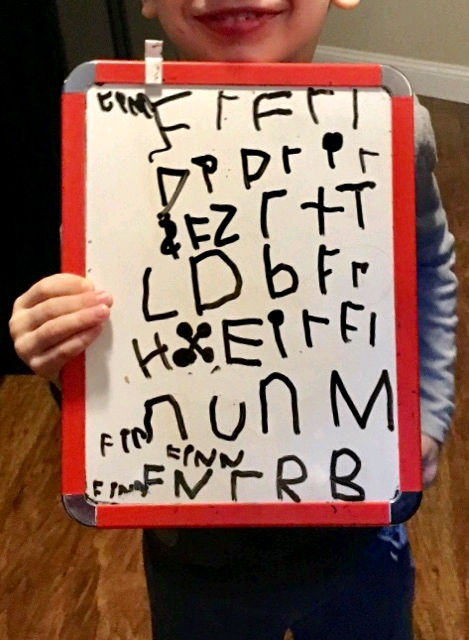 FINN F r F r l
D P D r i r
& F Z r + T
L D b F r
H E i r F l
n u n M
FINN
FINN
FINN F N r R B